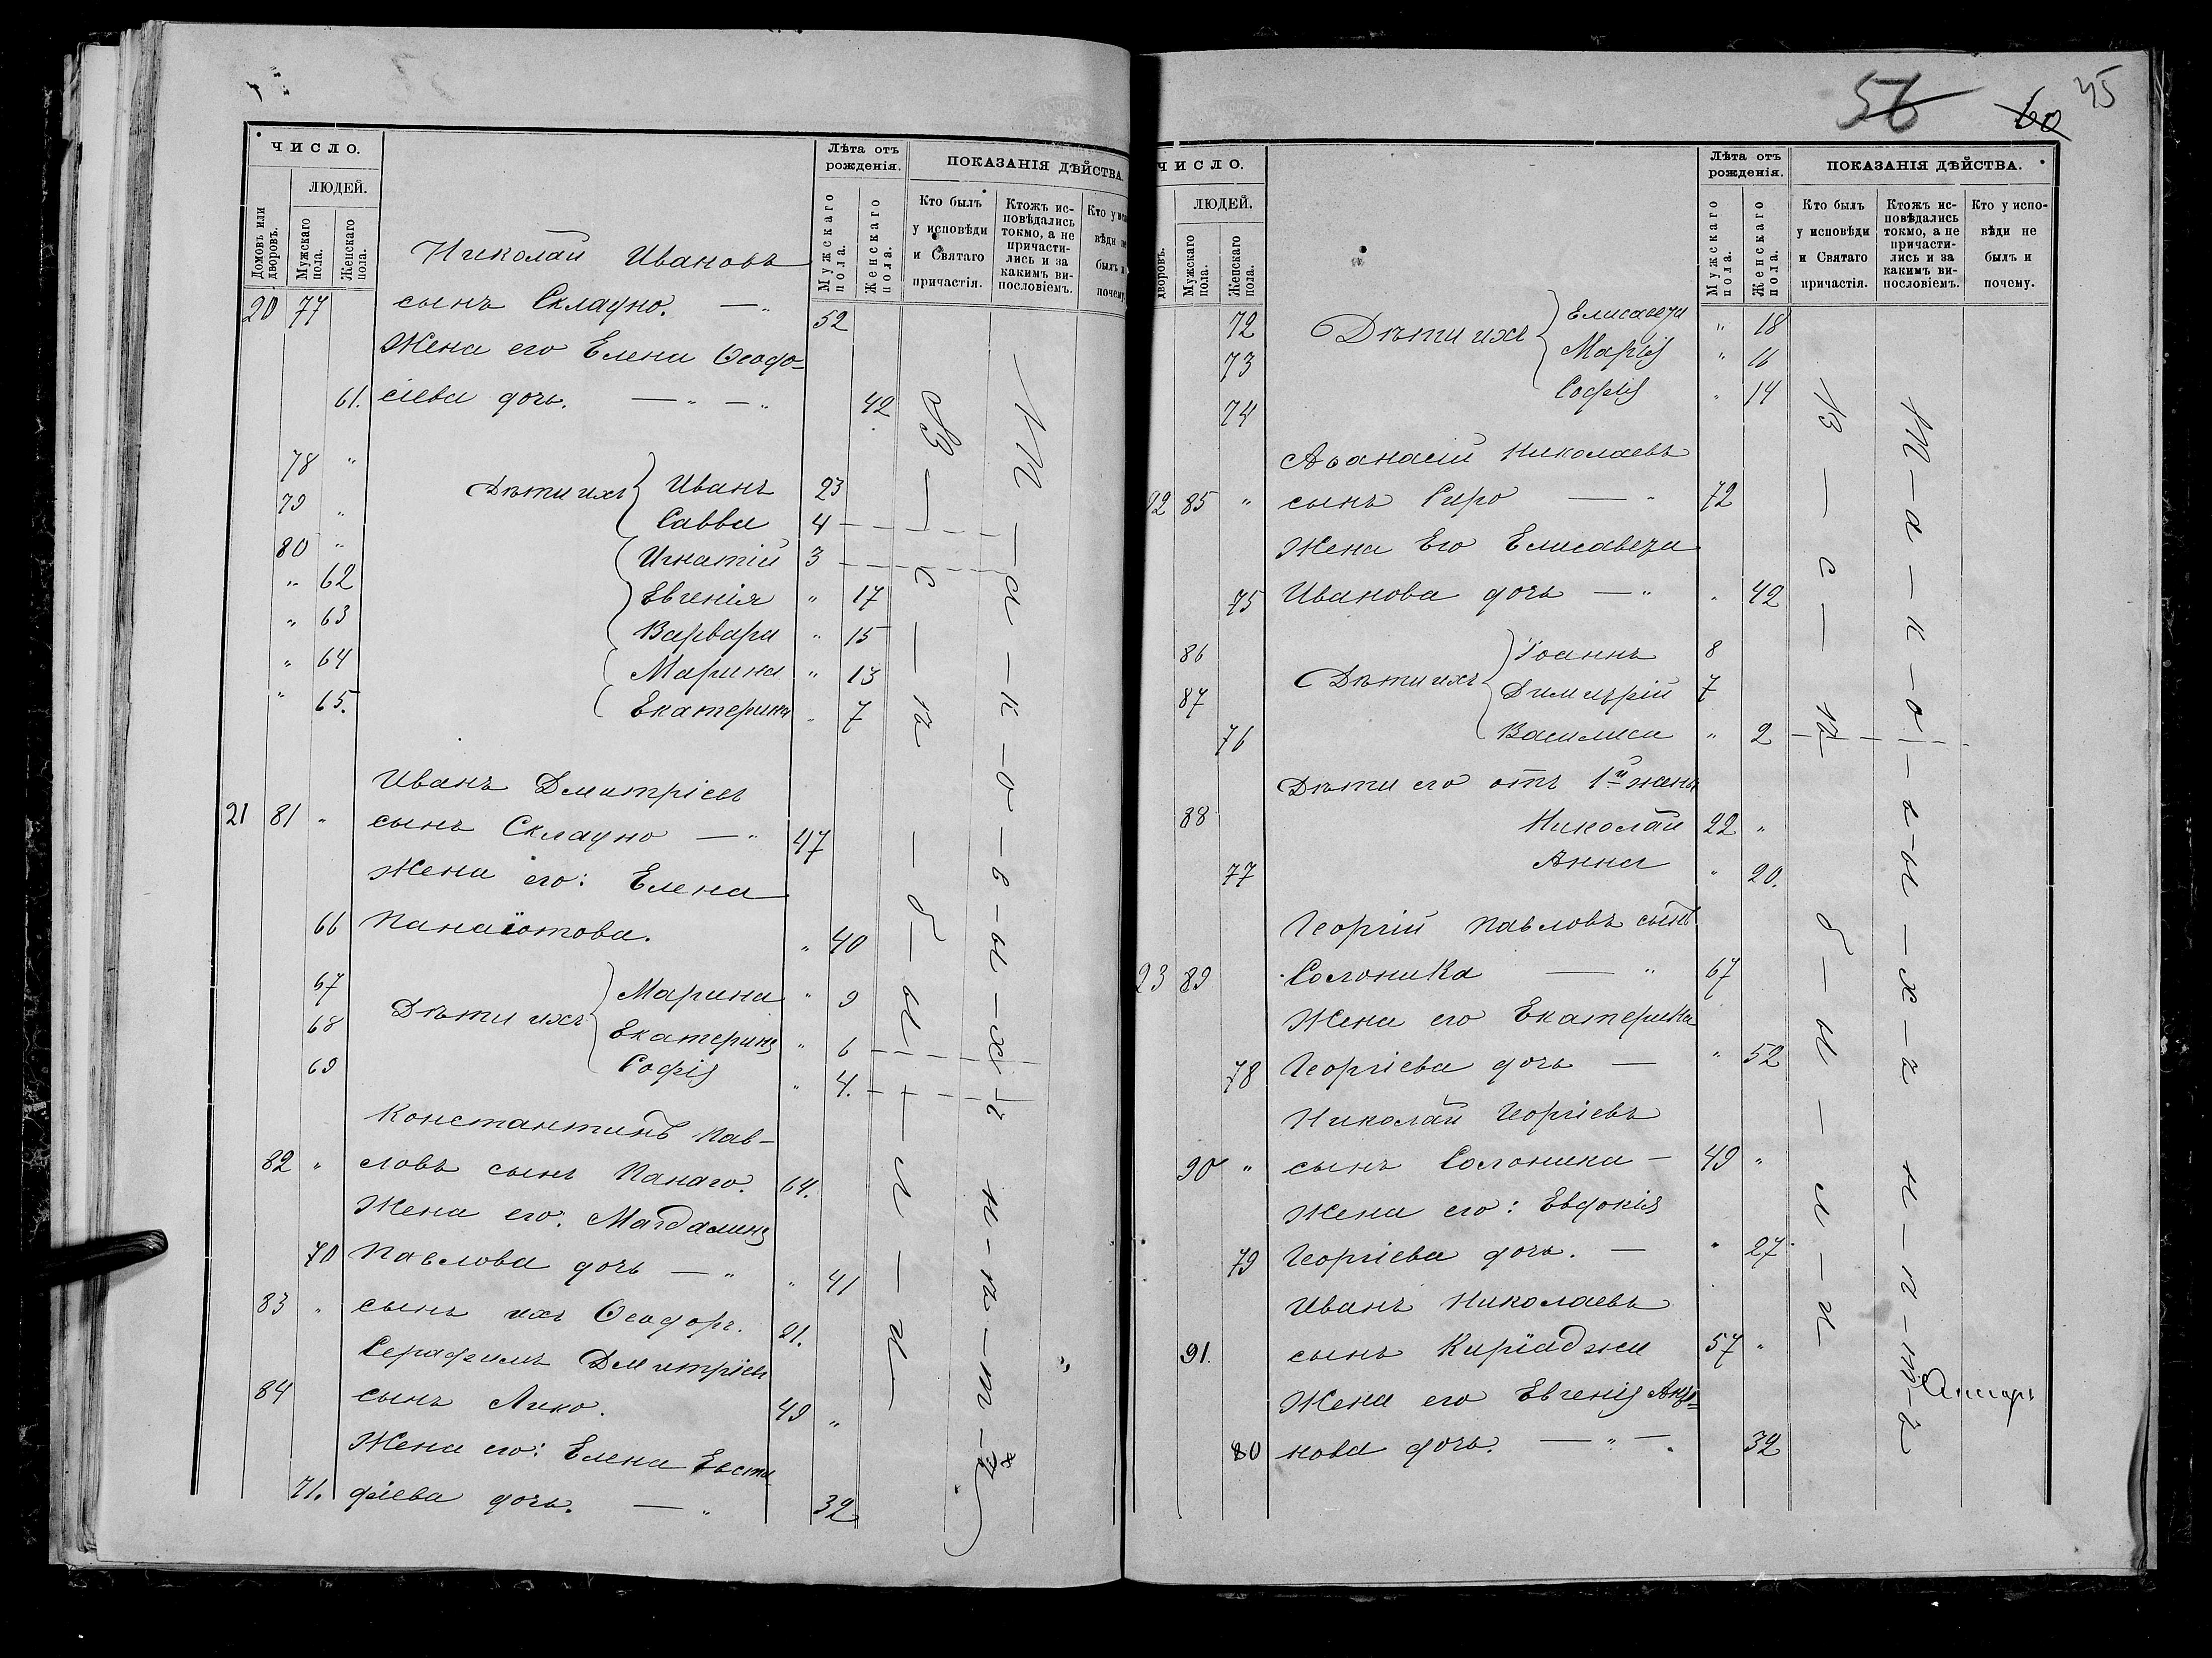 ЧИСЛО.
ЛЮДЕЙ.
Домовъ или дворовъ.
Мужскаго пола.
Женскаго пола.
Лѣта отъ рожденія.
Мужскаго пола.
Женскаго пола.
ПОКАЗАНІЯ ДѢЙСТВА.
Кто былъ у исповѣди и Святаго причастія.
Ктожъ исповѣдались токмо, а не причастились и за какимъ винословіемъ.
Николай Ивановъ
20 77 сынъ Склаỳно. — " 52
Жена его Елена Ѳеодо-
61. сіева дочь. — " — " 42
78 " Дѣти ихъ Иванъ 23
79 " Савва 4
80 " Игнатій 3
" 62 Евгенія " 17
" 63 Варвара " 15
" 64 Марина " 13
" 65. Екатерина " 7
Иванъ Дмитріевъ
21 81 " сынъ Склауно — " 47
Жена его: Елена
66 Панаіотова. " 40
67 Дѣти ихъ Марина " 9
68 Екатерина " 6
69 Софія " 4.
Константинъ Пав-
82 " ловъ сынъ Панаго. 64.
Жена его. Магдалина
70 Павлова дочь — " " 41
83 " сынъ ихъ Ѳеодоръ. 21.
Серафимъ Дмитріев
84 сынъ Лико. 49 "
Жена его: Елена Евста
71. фіева дочь. — " 32
56
60
45
ЧИСЛО.
ЛЮДЕЙ.
дворовъ.
Мужскаго пола.
Женскаго пола.
Лѣта отъ рожденія.
Мужскаго пола.
Женскаго пола.
ПОКАЗАНІЯ ДѢЙСТВА.
Кто былъ у исповѣди и Святаго причастія.
Ктожъ исповѣдались токмо, а не причастились и за какимъ винословіемъ.
Кто у исповѣди не былъ и почему.
72 Дѣти ихъ Елисавета " 18
73 Марія " 16
74 Софія " 14
Аѳанасій Николаевъ
22 85 " сынъ Сиро — " 72
Жена Его Елисавета
75 Иванова дочь — " " 42
86 Дѣти ихъ Іоаннъ 8
87 Димитрій 7
76 Василиса " 2
Дѣти его отъ 1й жены
88 Николай 22 "
77 Анна " 20.
Георгій Павловъ сынъ
23 89 Солоника — " 67
Жена его Екатерина
78 Георгіева дочь — " 52
Николай Георгіевъ
90 " сынъ Солоника — 49 "
Жена его: Евдокія
79 Георгіева дочь. — " 27
Иванъ Николаевъ
91. сынъ Киріаджи 57 "
Жена его Евгенія
80 нова дочь. — " — " 32